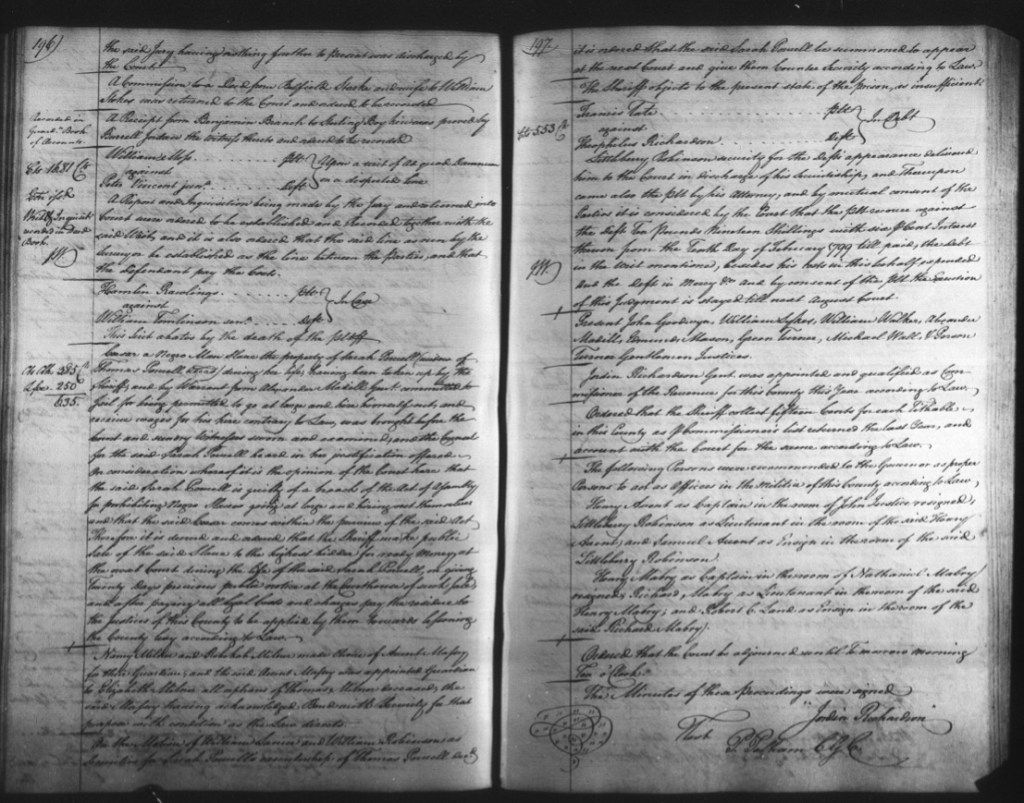 196)
the said Jury having nothing further to present was discharged by
the Court.
A Commission to a Deed from and wife to William
Stokes was returned to the Court and ordered to be recorded
A Receipt from Benjamin Branch to Sterling was proved by
Burrell the witness thereto and ordered to be recorded
Recorded in
Book
of Accounts
William Moss Plt
against
Peter Vincent junr. Deft
Upon a writ of ad quod Damnum
on a disputed line
A Report and Inquisition being made by the Jury and returned into
Court were ordered to be established and Recorded together with the
said Writ, and it is also ordered that the said line as run by the
Surveyor be established as the line between the Parties, and that
the Defendant pay the Costs.
1681
Writ & Inquisit
in Deed
Book
Rawlings Plt
against
William Tomlinson senr. Deft
In Case
This Suit abates by the death of the Pltff
Caesar a Negro Man Slave the property of Sarah Powell
Thomas Powell Decd. during her life, having been taken up by the
Sheriff, and by Warrant from Alexander Madill Gent. committed to
Jail for being permitted to go at large and hire himself out, and
receive wages for his hire contrary to Law, was brought before the
Court and sundry Witnesses sworn and examined, and the Council
for the said Sarah Powell heard in her justification offered
On consideration whereof it is the opinion of the Court here that
the said Sarah Powell is guilty of a breach of the Act of Assembly
for prohibiting Negro Slaves going at large and hiring out themselves
and that the said Caesar comes within the purview of the said Act
Therefore it is decreed and ordered that the Sheriff make public
sale of the said Slave to the highest bidder for ready Money, at
the next Court during the life of the said Sarah Powell, on giving
Twenty Days previous public notice at the Courthouse of such sale
and after paying all legal Costs and charges pay the residue to
the Justices of this County to be applied by them towards lessening
the County levy according to Law.
385
250
635
Nancy Milner and Rebekah Milner made choice of Avent Massey
for their Guardian, and the said Avent Massey was appointed Guardian
to Elizabeth Milner all orphans of Thomas Milner deceased, the
said Massey having acknowledged Bond with Security for that
purpose with condition as the Law directs
On the Motion of William and William Robinson as
Securities for Sarah Powell's of Thomas Powell Decd.
197
it is ordered that the said Sarah Powell be summoned to appear
at the next Court and give them Counter Security according to Law.
The Sheriff objects to the present state of the prison, as insufficient.
Francis Tate Plt
against
Theophilus Richardson Deft
In Debt
553
Littlebury Robinson security for the Defts appearance delivered
him to the Court in discharge of his Suretiship, and Thereupon
came also the Plt by his Attorney, and by mutual consent of the
Parties it is considered by the Court that the Plt recover against
the Deft Ten Pounds Nineteen Shillings with six pCent Interest
thereon from the Tenth Day of February 1799 till paid, the debt
in the Writ mentioned, besides his Costs in this behalf expended
And the Deft in Mercy &c and by consent of the Plt the Execution
of this Judgment is stayed till next August Court
Present John Goodwyn, William William Walker, Alexander
Madill, Edmunds Mason, Green Turner, Michael Wall & Person
Turner Gentlemen Justices.
Jordan Richardson Gent was appointed and qualified as Com-
missioner of the Revenue for this County this Year according to Law.
Ordered that the Sheriff collect fifteen Cents for each Tithable
in this County as p Commissioner's list returned the last Year, and
account with the Court for the same according to Law.
The following Persons were recommended to the Governor as proper
Persons to act as Officers in the Militia of this County according to Law,
Henry Avent as Captain in the room of John Justice resigned,
Littlebury Robinson as Lieutenant in the room of the said Henry
Avent, and Samuel Avent as Ensign in the room of the said
Littlebury Robinson
Henry Mabry as Captain in the room of Nathaniel Mabry
resigned, Richard Mabry as Lieutenant in the room of the said
Henry Mabry, and Robert C. Land as Ensign in the room of the
said Richard Mabry.
Ordered that the Court be adjourned until Tomorrow morning
Ten o'Clock
The Minutes of these proceedings were signed
Jordan Richardson
Test
P. Pelham C.G.C.